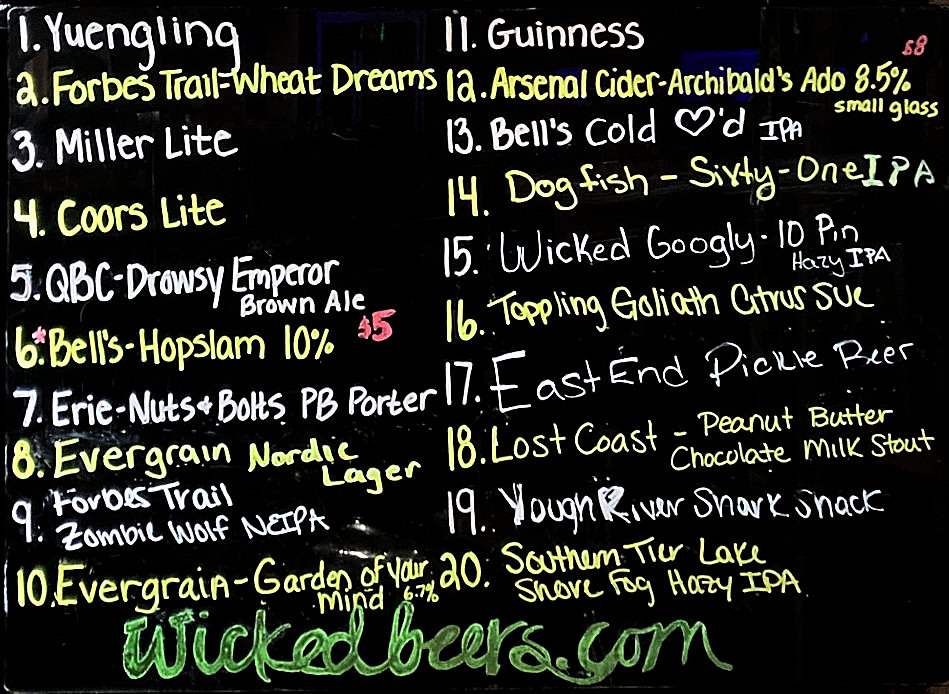 1. Yuengling
2. Forbes Trail-Wheat Dreams
3. Miller Lite
4. Coors Lite
5. QBC-Drowsy Emperor
Brown Ale
6.* Bell's-Hopslam 10% $5
7. Erie-Nuts+Bolts PB Porter
8. Evergrain Nordic
Lager
9. Forbes Trail
Zombie Wolf NEIPA
10. Evergrain-Garden of Your
Mind 6.7%
11. Guinness
$8
12. Arsenal Cider-Archibald's Ado 8.5%
small glass
13. Bell's Cold ♡'d IPA
14. Dogfish - Sixty-One IPA
15. Wicked Googly-10 Pin
Hazy IPA
16. Toppling Goliath Citrus Sue
17. East End Pickle Beer
18. Lost Coast - Peanut Butter
Chocolate Milk Stout
19. Yough River Shark Snack
20. Southern Tier Lake
Shore Fog Hazy IPA
Wickedbeers.com